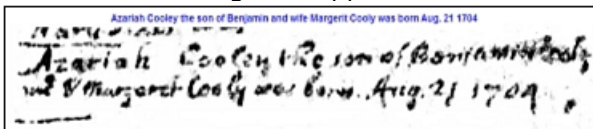 Azariah Cooley the son of Benjamin and wife Margerit Cooly was born Aug. 21 1704
Azariah Cooley the son of Benjamin Cooly
and & Margaret Cooly was born Aug. 21 1704